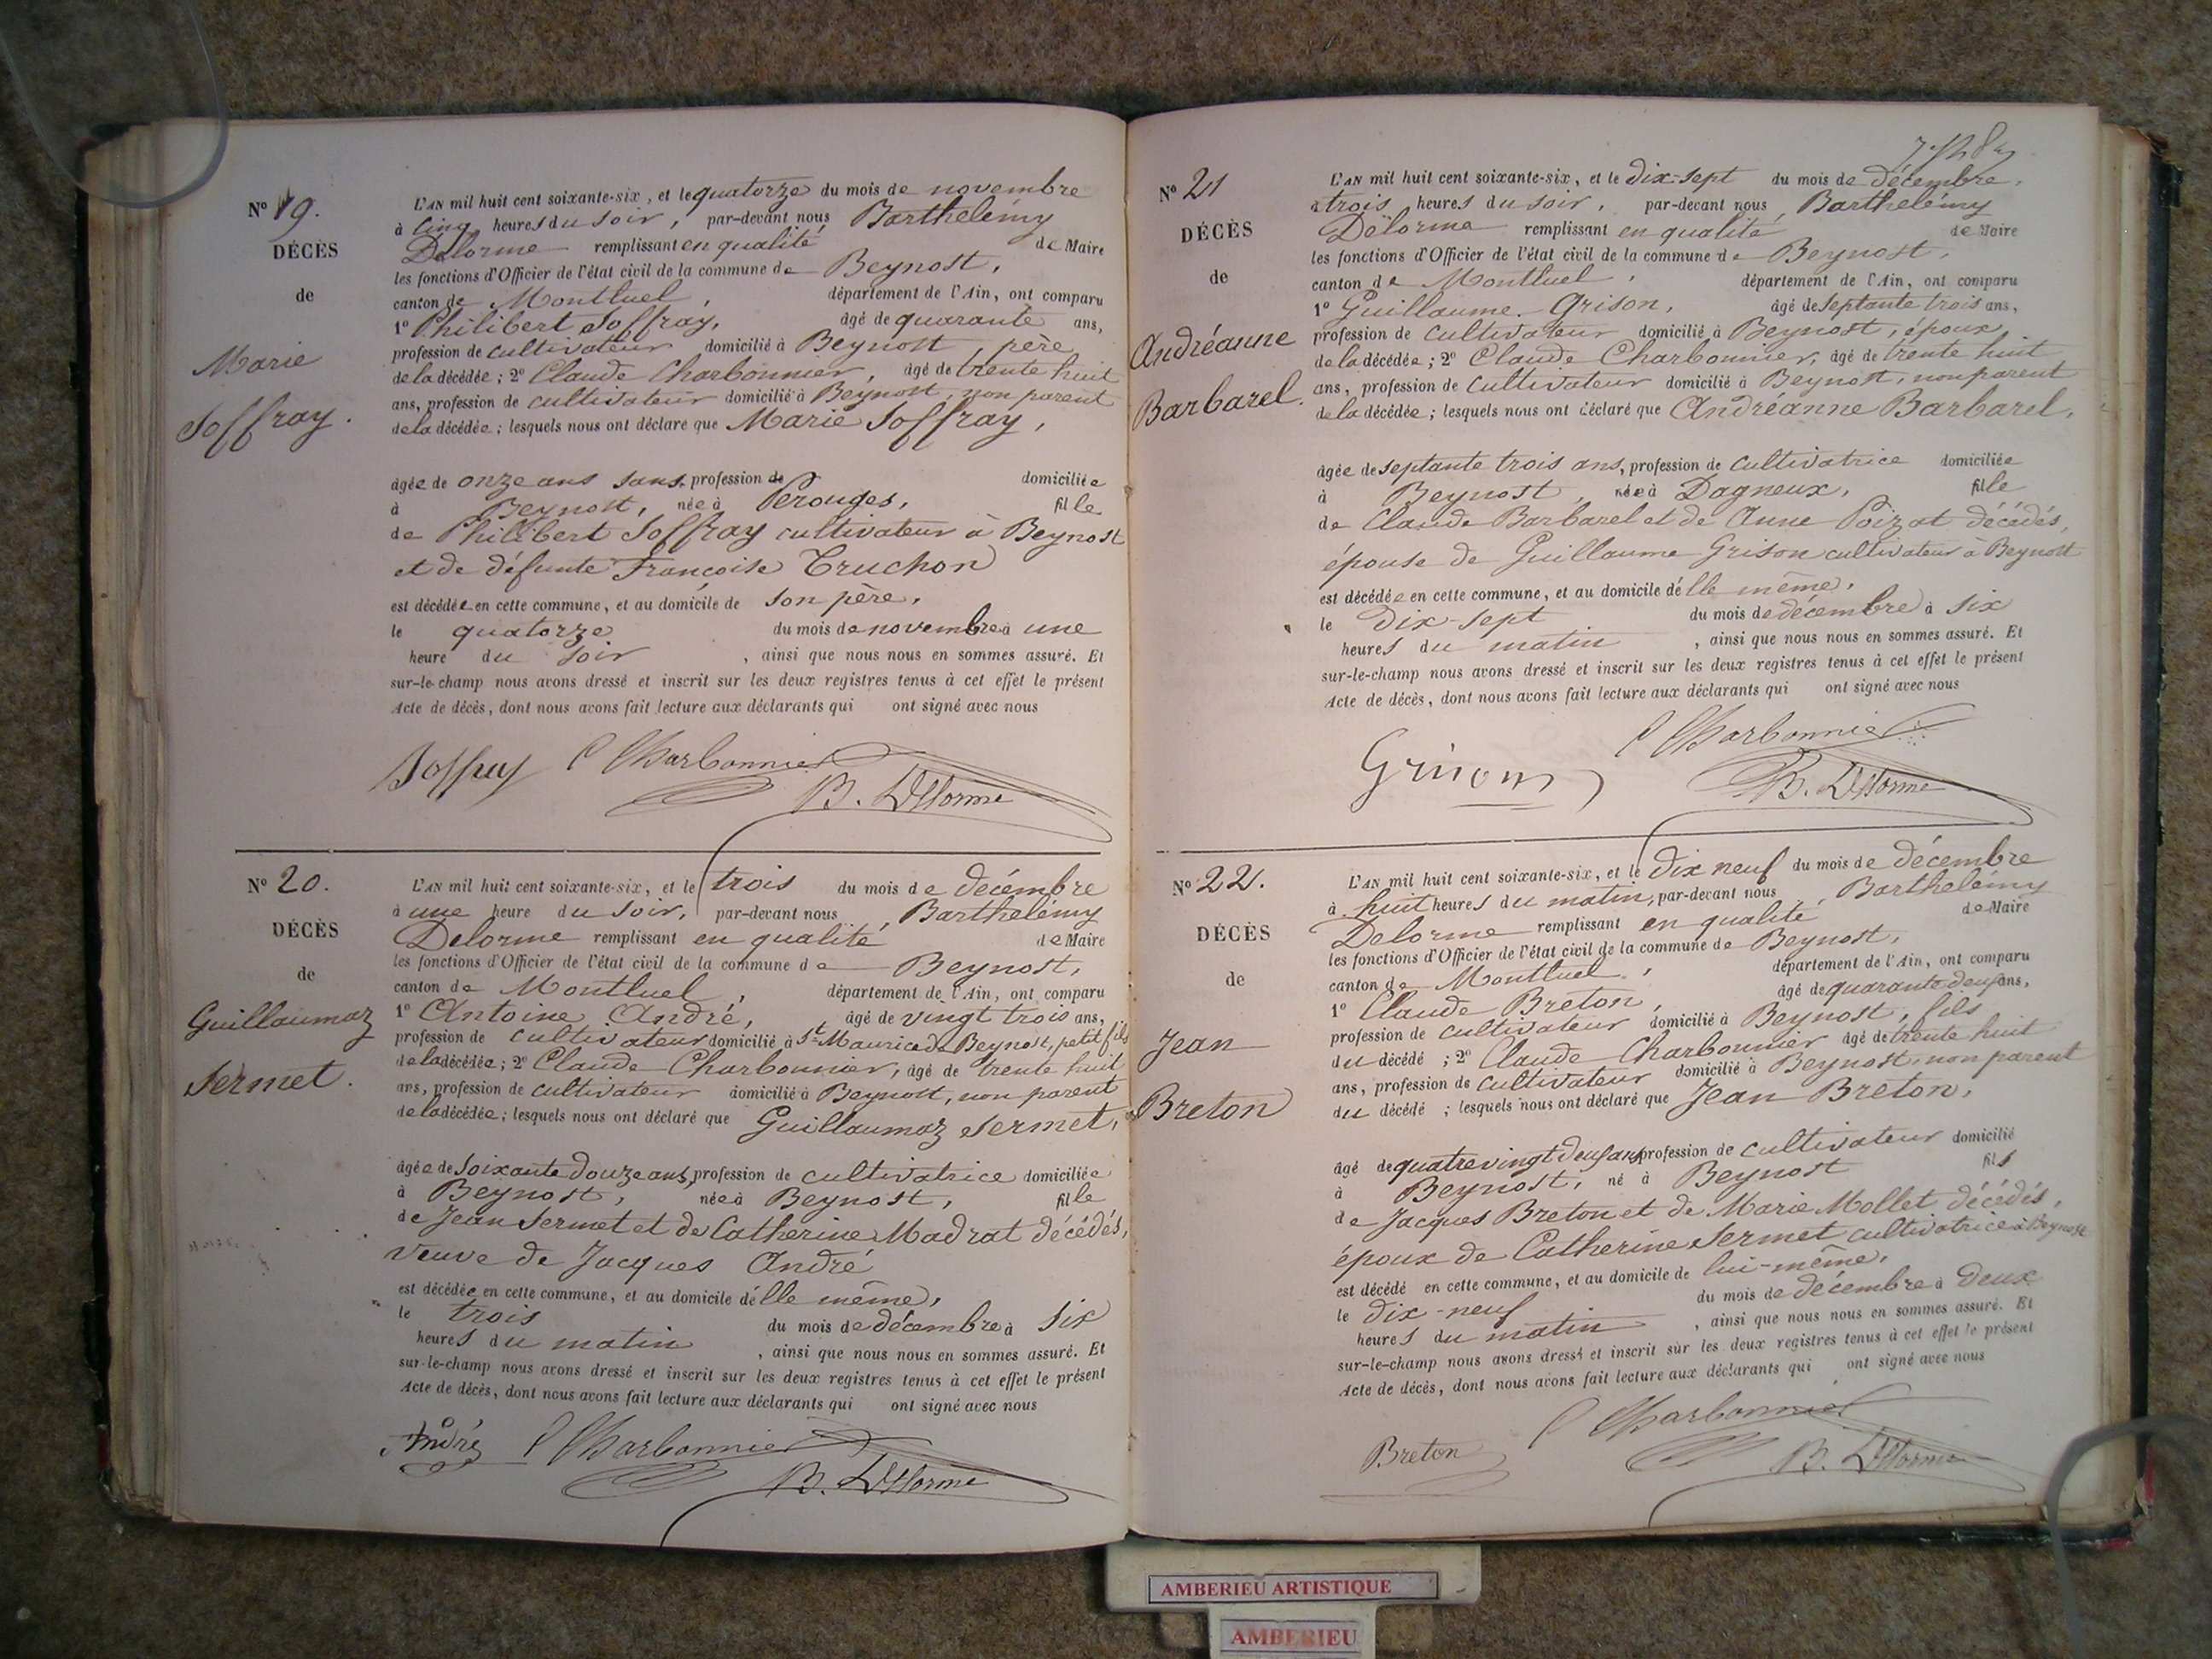 Nº 19.
DÉCÈS
de
Marie
Joffray.
L'AN mil huit cent soixante-six, et le quatorze du mois de novembre
à cinq heures du soir, par-devant nous Barthelémy
Delorme remplissant en qualité de Maire
les fonctions d'Officier de l'état civil de la commune de Beynost,
canton de Montluel, département de l'Ain, ont comparu
1º Philibert Joffray, âgé de quarante ans,
profession de cultivateur domicilié à Beynost, père
de la décédée; 2º Claude Charbonnier, âgé de trente huit
ans, profession de cultivateur domicilié à Beynost, non parent
de la décédée; lesquels nous ont déclaré que Marie Joffray,
âgée de onze ans sans profession de domiciliée
à Beynost, née à Perouges, fille
de Philibert Joffray cultivateur à Beynost
et de défunte Françoise Truchon
est décédée en cette commune, et au domicile de son père,
le quatorze du mois de novembre à une
heure du soir, ainsi que nous nous en sommes assuré. Et
sur-le-champ nous avons dressé et inscrit sur les deux registres tenus à cet effet le présent
Acte de décès, dont nous avons fait lecture aux déclarants qui ont signé avec nous
Joffray C Charbonnier
B. Delorme
Nº 20.
DÉCÈS
de
Guillaumaz
Sermet.
L'AN mil huit cent soixante-six, et le trois du mois de décembre
à une heure du soir, par-devant nous, Barthelémy
Delorme remplissant en qualité de Maire
les fonctions d'Officier de l'état civil de la commune de Beynost,
canton de Montluel, département de l'Ain, ont comparu
1º Antoine André, âgé de vingt trois ans,
profession de cultivateur domicilié à St Maurice de Beynost, petit fils
de la décédée; 2º Claude Charbonnier, âgé de trente huit
ans, profession de cultivateur domicilié à Beynost, non parent
de la décédée; lesquels nous ont déclaré que Guillaumaz Sermet,
âgée de soixante douze ans, profession de cultivatrice domiciliée
à Beynost, née à Beynost, fille
de Jean Sermet et de Catherine Madrat décédés,
veuve de Jacques André
est décédée en cette commune, et au domicile d'elle même,
le trois du mois de décembre à six
heures du matin, ainsi que nous nous en sommes assuré. Et
sur-le-champ nous avons dressé et inscrit sur les deux registres tenus à cet effet le présent
Acte de décès, dont nous avons fait lecture aux déclarants qui ont signé avec nous
André C Charbonnier
B. Delorme
Nº 21
DÉCÈS
de
Andréanne
Barbarel.
L'AN mil huit cent soixante-six, et le dix-sept du mois de décembre,
à trois heures du soir, par-devant nous, Barthelémy
Delorme remplissant en qualité de Maire
les fonctions d'Officier de l'état civil de la commune de Beynost,
canton de Montluel, département de l'Ain, ont comparu
1º Guillaume Grison, âgé de septante trois ans,
profession de cultivateur domicilié à Beynost, époux
de la décédée; 2º Claude Charbonnier, âgé de trente huit
ans, profession de cultivateur domicilié à Beynost, non parent
de la décédée; lesquels nous ont déclaré que Andréanne Barbarel,
âgée de septante trois ans, profession de cultivatrice domiciliée
à Beynost, née à Dagneux, fille
de Claude Barbarel et de Anne Poizat décédés,
épouse de Guillaume Grison cultivateur à Beynost
est décédée en cette commune, et au domicile d'elle même,
le dix-sept du mois de décembre à six
heures du matin, ainsi que nous nous en sommes assuré. Et
sur-le-champ nous avons dressé et inscrit sur les deux registres tenus à cet effet le présent
Acte de décès, dont nous avons fait lecture aux déclarants qui ont signé avec nous
C Charbonnier
Grison
B. Delorme
Nº 22.
DÉCÈS
de
Jean
Breton
L'AN mil huit cent soixante-six, et le dix neuf du mois de décembre
à huit heures du matin, par-devant nous, Barthelémy
Delorme remplissant en qualité de Maire
les fonctions d'Officier de l'état civil de la commune de Beynost,
canton de Montluel, département de l'Ain, ont comparu
1º Claude Breton, âgé de quarante deux ans,
profession de cultivateur domicilié à Beynost, fils
du décédé; 2º Claude Charbonnier âgé de trente huit
ans, profession de cultivateur domicilié à Beynost, non parent
du décédé; lesquels nous ont déclaré que Jean Breton,
âgé de quatre vingt deux ans profession de cultivateur domicilié
à Beynost, né à Beynost fils
de Jacques Breton et de Marie Mollet décédés,
époux de Catherine Sermet cultivatrice à Beynost
est décédé en cette commune, et au domicile de lui-même,
le dix-neuf du mois de décembre à deux
heures du matin, ainsi que nous nous en sommes assuré. Et
sur-le-champ nous avons dressé et inscrit sur les deux registres tenus à cet effet le présent
Acte de décès, dont nous avons fait lecture aux déclarants qui ont signé avec nous
C Charbonnier
Breton
B. Delorme
AMBERIEU ARTISTIQUE
AMBERIEU